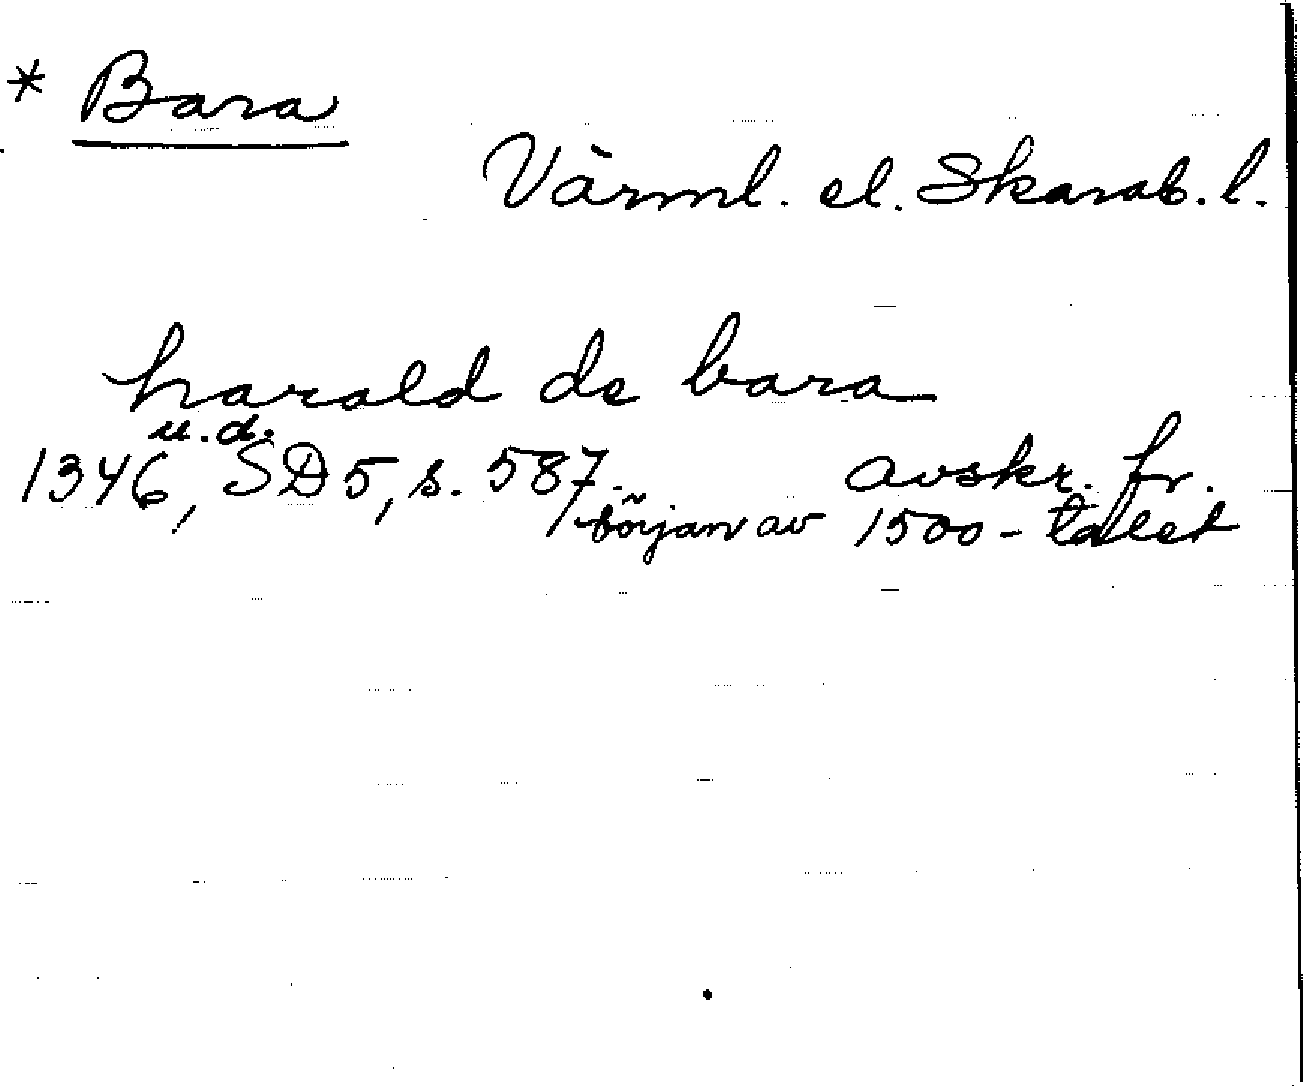 * Bara
Värml. el. Skarab. l.
harald de bara
u.d.
1346, SD 5, s. 587. avskr. fr.
början av 1500-talet